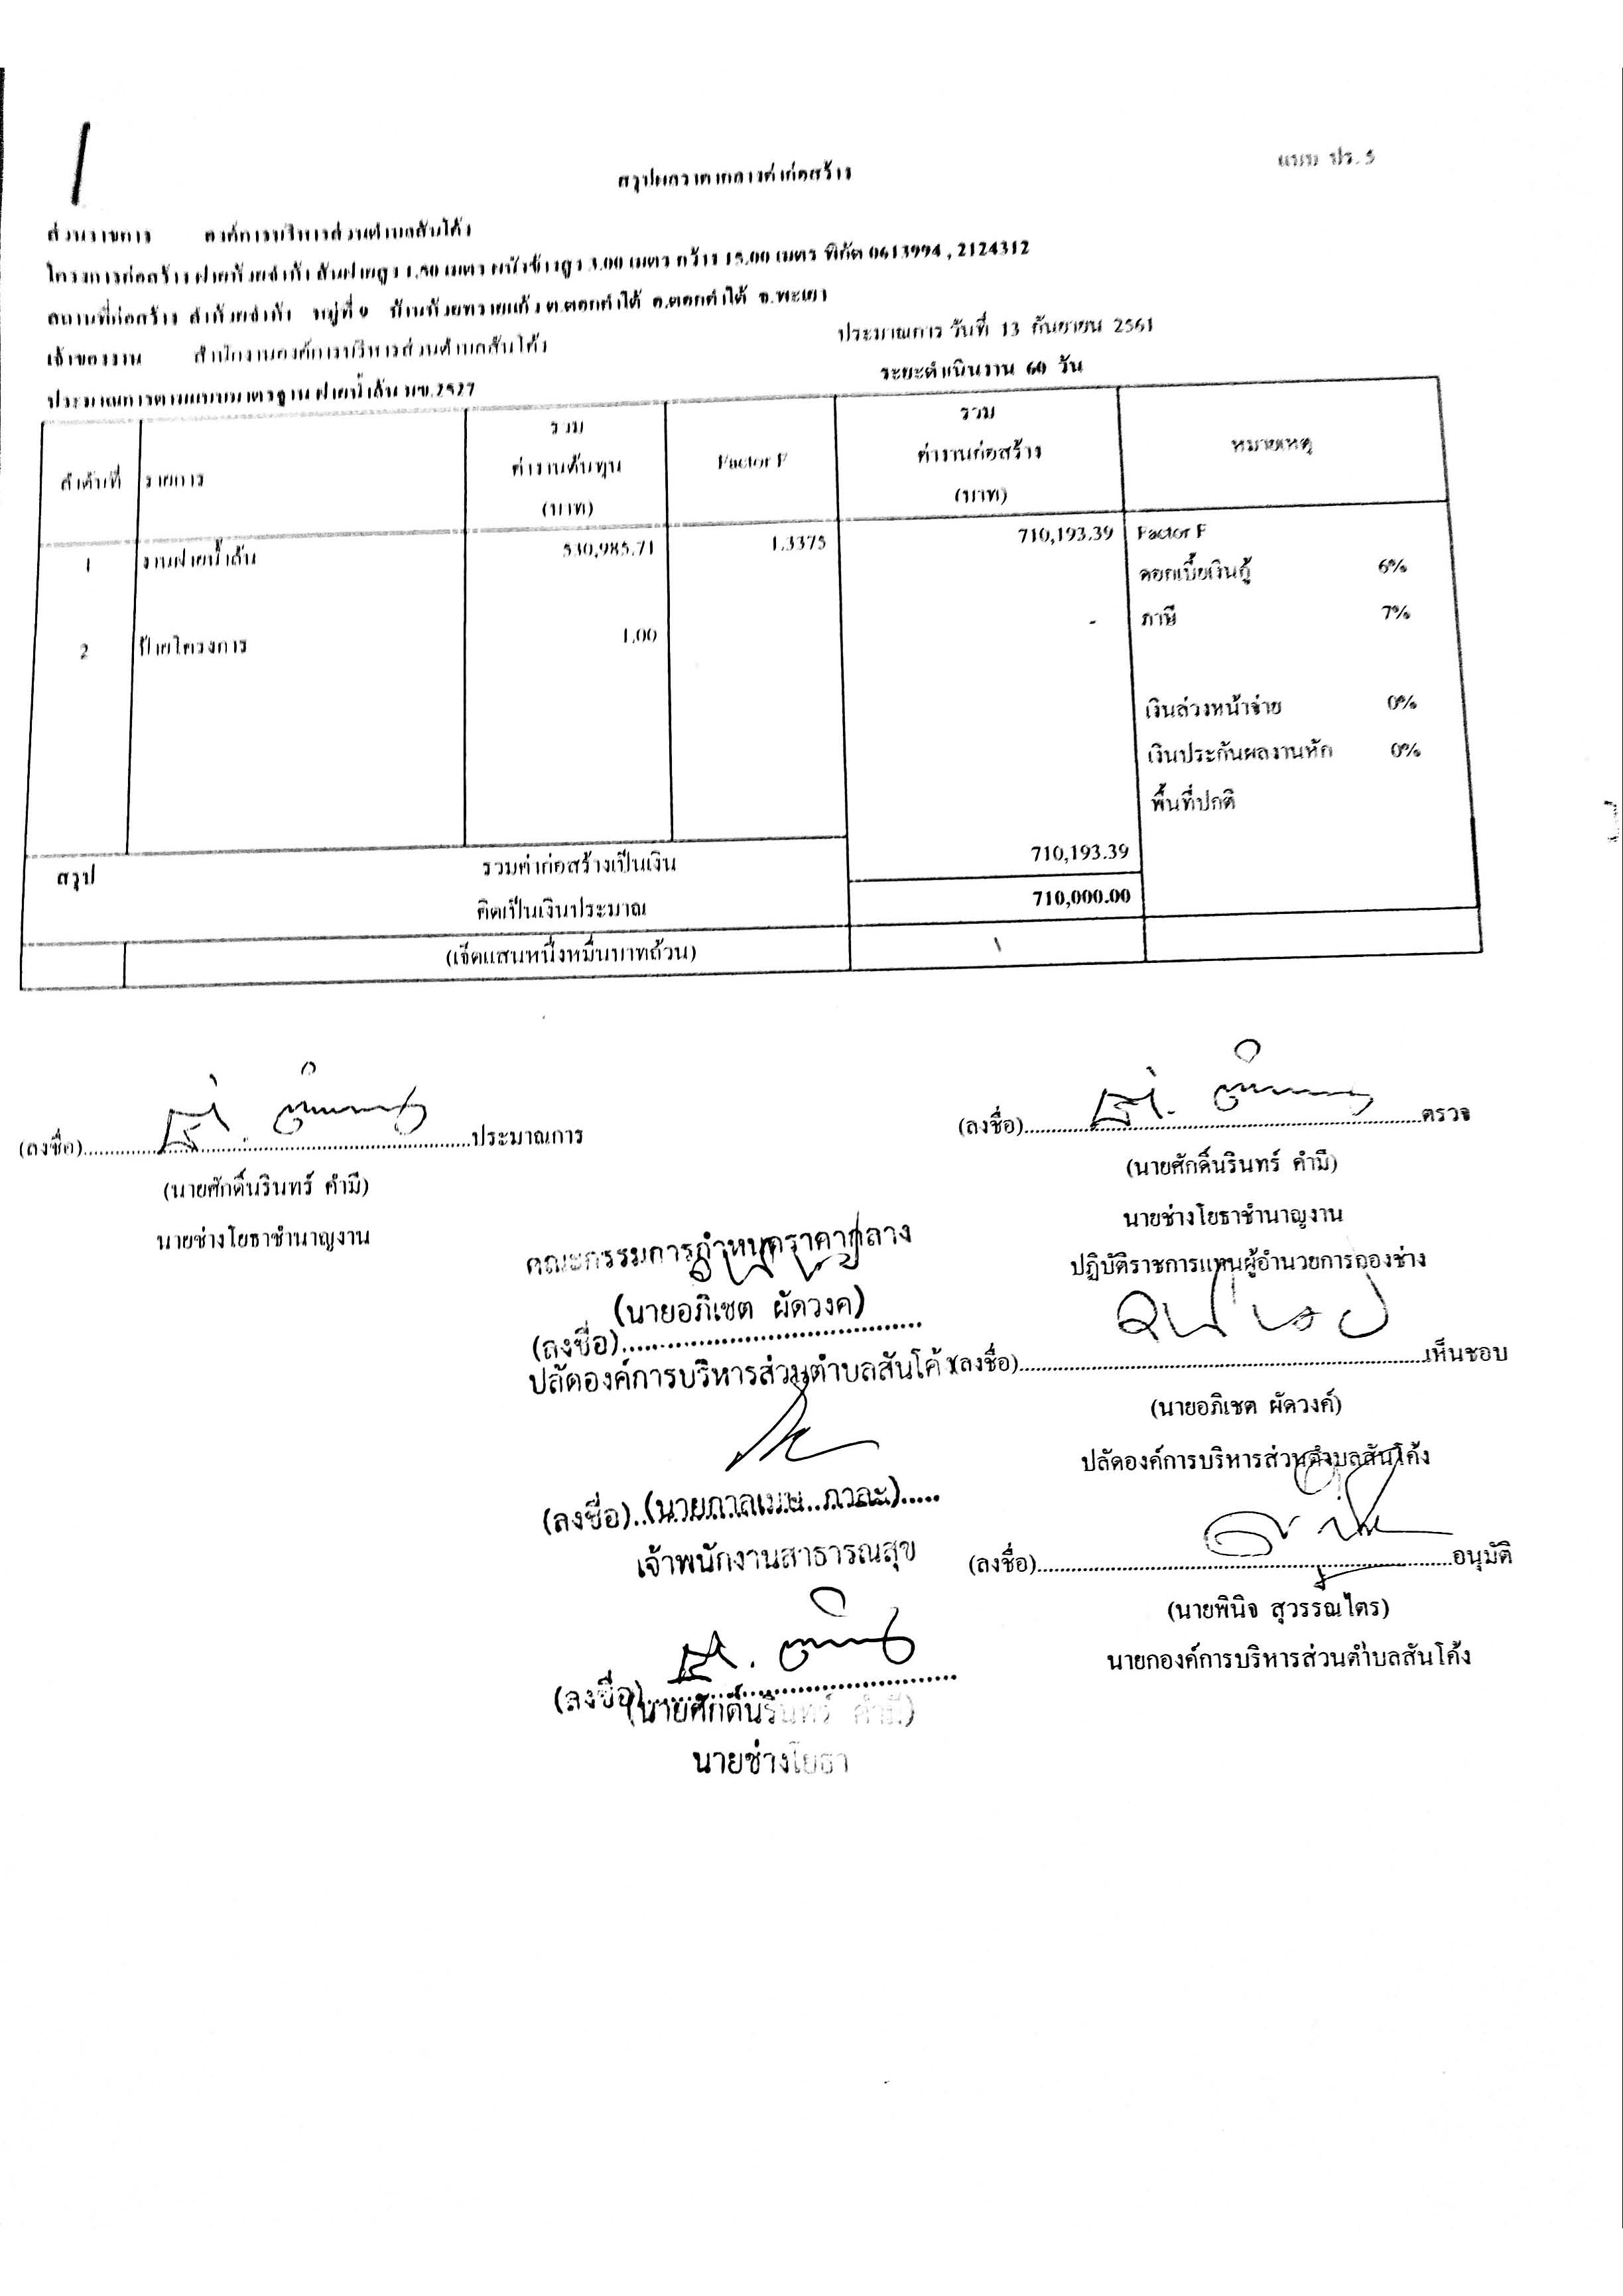 แบบ ปร. 5
สรุปผลราคากลางค่าก่อสร้าง
ส่วนราชการ องค์การบริหารส่วนตำบลสันโค้ง
โครงการก่อสร้าง ฝายห้วย สันฝายสูง 1.50 เมตร ผนังข้างสูง 3.00 เมตร กว้าง 15.00 เมตร พิกัด 0613994 , 2124312
สถานที่ก่อสร้าง หมู่ที่ 9 บ้านห้วยทรายแก้ว ต.ดอกคำใต้ อ.ดอกคำใต้ จ.พะเยา
เจ้าของงาน สำนักงานองค์การบริหารส่วนตำบลสันโค้ง
ประมาณการ วันที่ 13 กันยายน 2561
ประมาณการตามแบบมาตรฐาน ฝายน้ำล้น มข.2527
ระยะดำเนินงาน 60 วัน
ลำดับที่ รายการ รวม ค่างานต้นทุน (บาท) Factor F รวม ค่างานก่อสร้าง (บาท) หมายเหตุ
1 งานฝายน้ำล้น 530,985.71 1.3375 710,193.39 Factor F
ดอกเบี้ยเงินกู้ 6%
2 ป้ายโครงการ 1.00 - ภาษี 7%
เงินล่วงหน้าจ่าย 0%
เงินประกันผลงานหัก 0%
พื้นที่ปกติ
สรุป รวมค่าก่อสร้างเป็นเงิน 710,193.39
คิดเป็นเงินประมาณ 710,000.00
(เจ็ดแสนหนึ่งหมื่นบาทถ้วน)
(ลงชื่อ)....................ประมาณการ
(นายศักดิ์นรินทร์ คำมี)
นายช่างโยธาชำนาญงาน
(ลงชื่อ)....................ตรวจ
(นายศักดิ์นรินทร์ คำมี)
นายช่างโยธาชำนาญงาน
ปฏิบัติราชการแทนผู้อำนวยการกองช่าง
คณะกรรมการกำหนดราคากลาง
(นายอภิเชต ผัดวงค์)
(ลงชื่อ)....................
ปลัดองค์การบริหารส่วนตำบลสันโค้ง
(ลงชื่อ)....................เห็นชอบ
(นายอภิเชต ผัดวงค์)
ปลัดองค์การบริหารส่วนตำบลสันโค้ง
(ลงชื่อ)..(นายกาลเมษ ภาละ).....
เจ้าพนักงานสาธารณสุข
(ลงชื่อ)....................อนุมัติ
(นายพินิจ สุวรรณไตร)
นายกองค์การบริหารส่วนตำบลสันโค้ง
(ลงชื่อ)....................
(นายศักดิ์นรินทร์ คำมี)
นายช่างโยธา